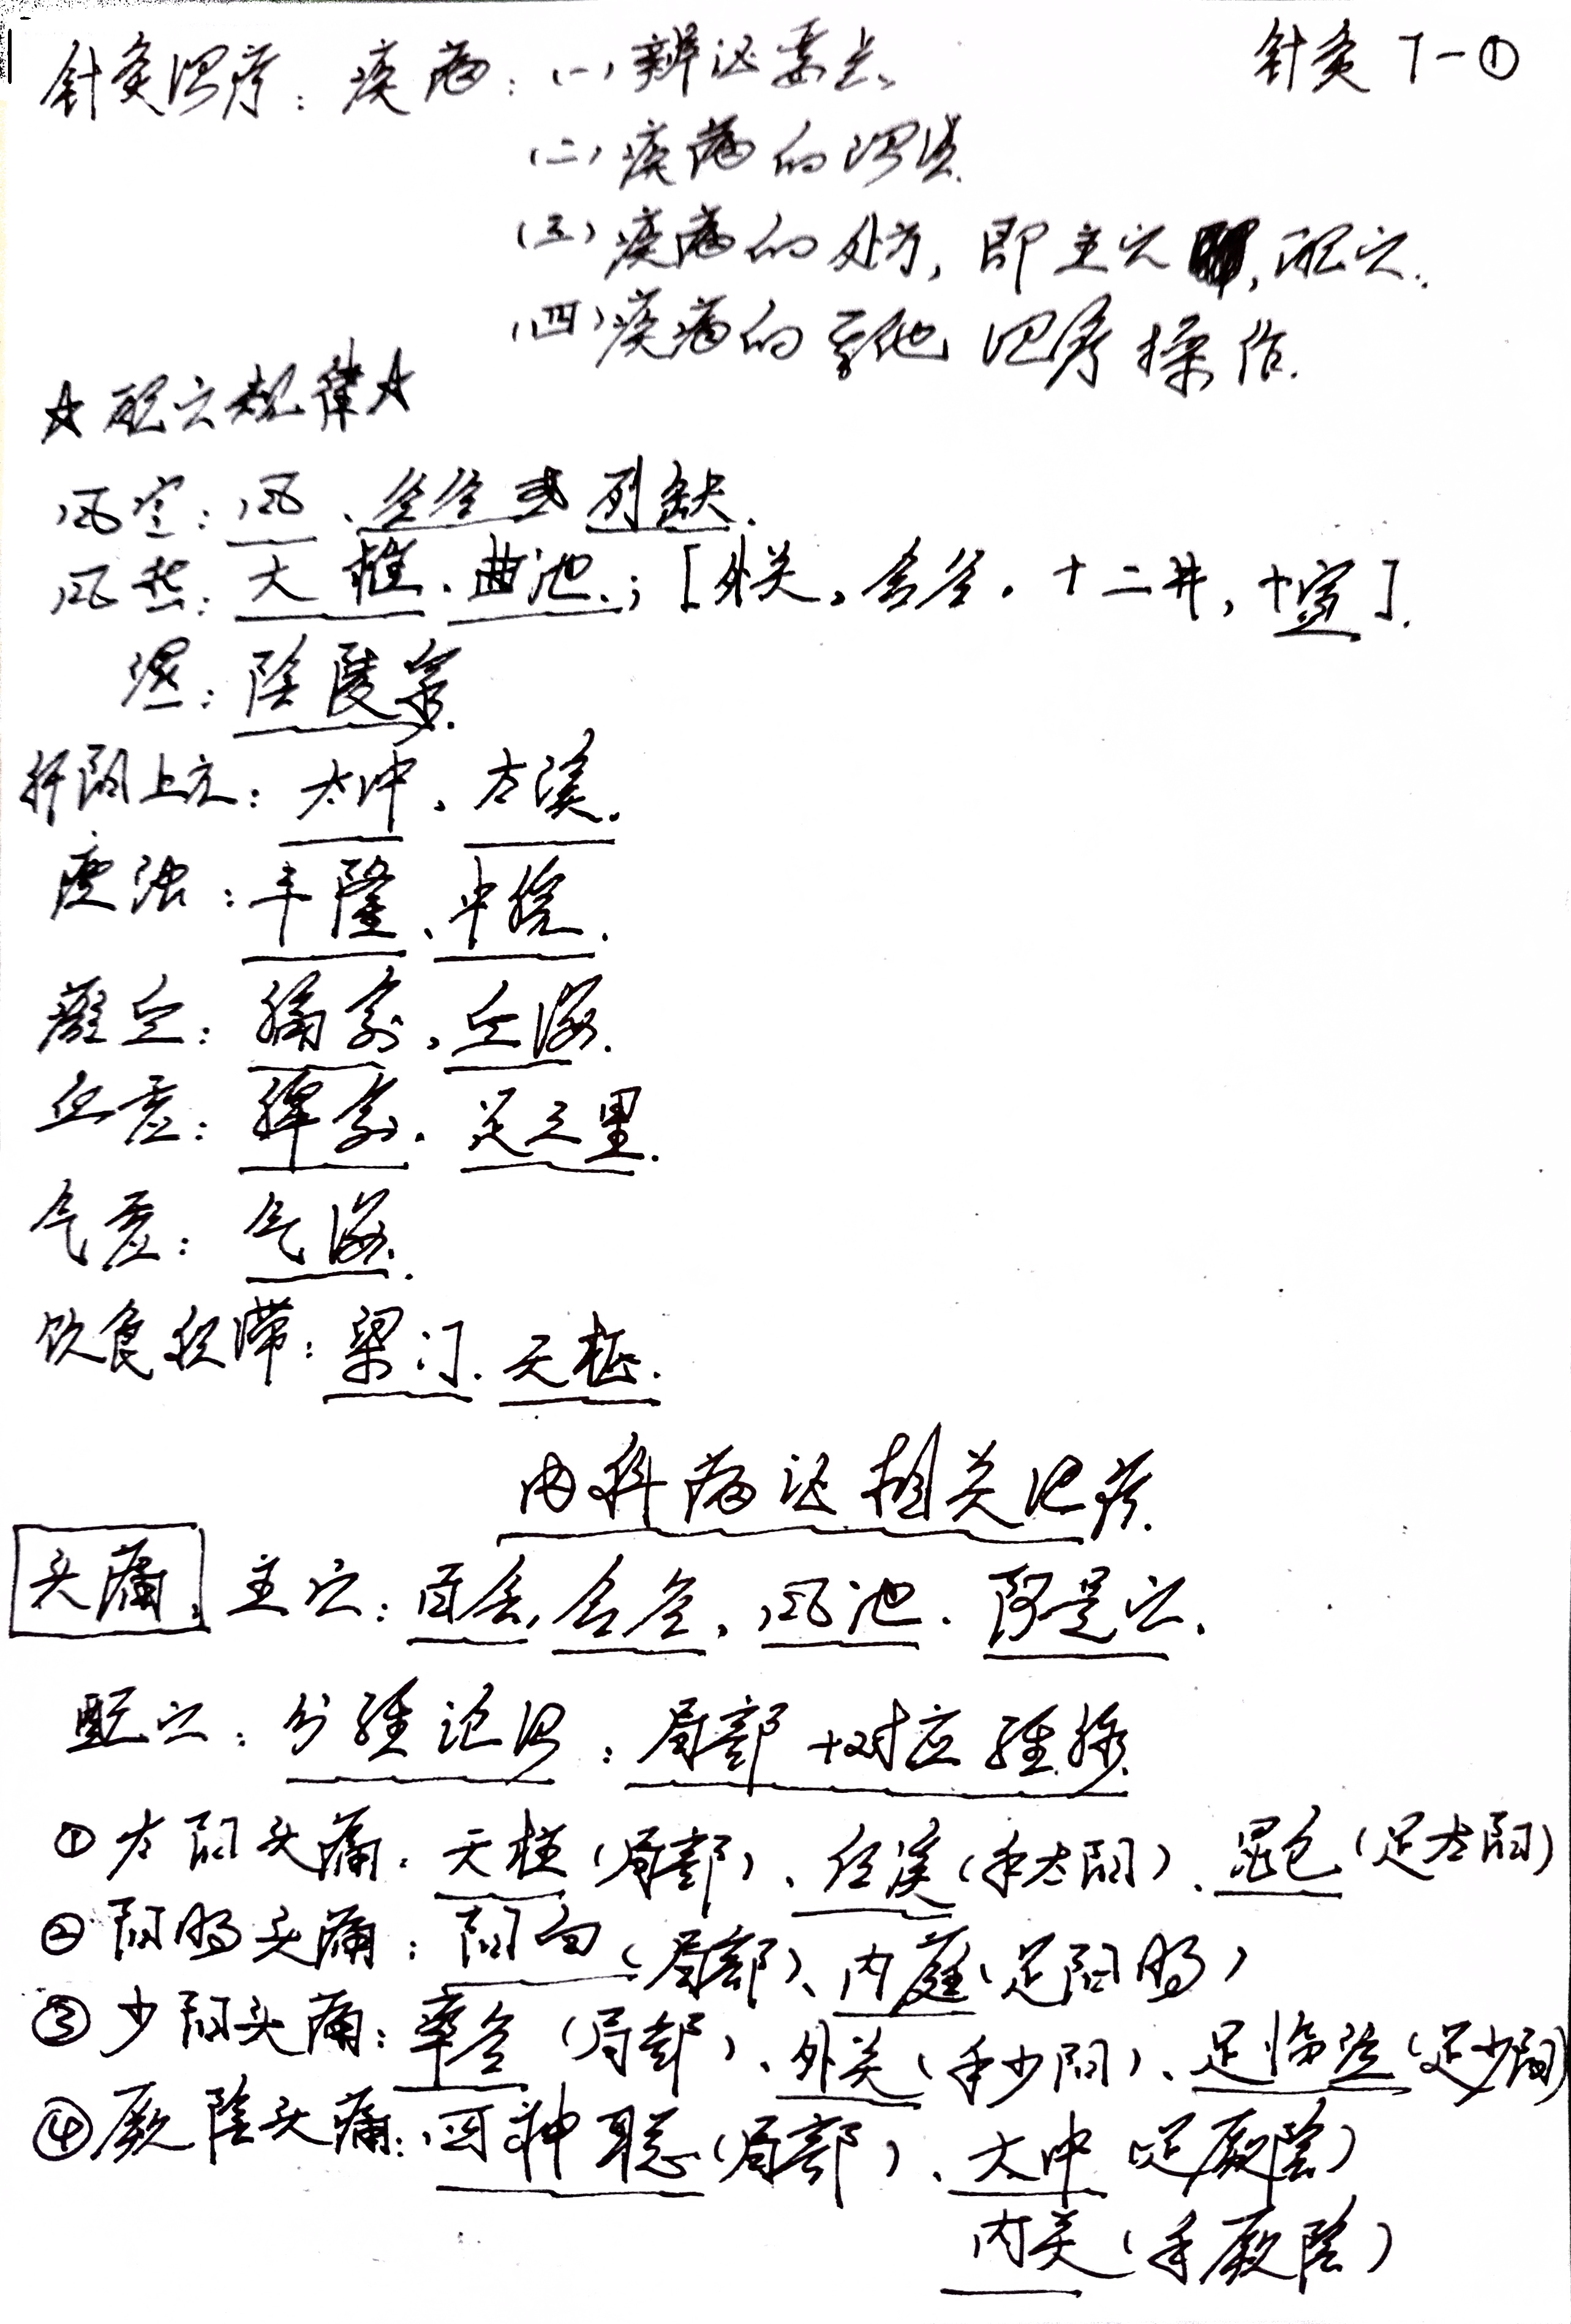 针灸 T-①
针灸治疗：疾病：(一)辨证要点
(二)疾病的治法.
(三)疾病的处方，即主穴，配穴.
(四)疾病的其他治疗操作.
☆配穴规律☆
风寒：风、合谷或列缺.
风热：大椎、曲池；[外关、合谷、十二井，十宣].
湿：陰陵泉.
肝阳上亢：太冲、太溪.
痰浊：丰隆、中脘.
瘀血：膈俞、血海.
血虚：脾俞、足三里.
气虚：气海.
饮食积滞：梁门、天枢.
内科病证相关治疗.
头痛：主穴：百会、合谷、风池、阿是穴.
配穴：分经论治：局部+对应经络.
①太阳头痛：天柱(局部)、后溪(手太阳)、昆仑(足太阳)
②阳明头痛：阳白(局部)、内庭(足阳明)
③少阳头痛：率谷(局部)、外关(手少阳)、足临泣(足少阳)
④厥陰头痛：四神聪(局部)、太冲(足厥陰)
内关(手厥陰)